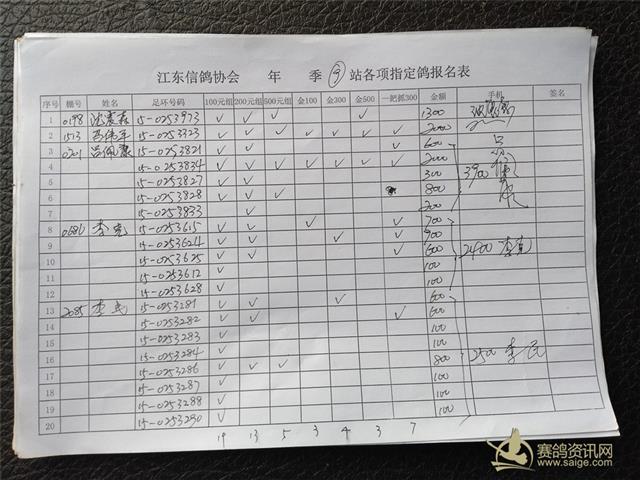 江东信鸽协会 年 季 ⑨ 站各项指定鸽报名表
序号 棚号 姓名 足环号码 100元组 200元组 500元组 金100 金300 金500 一把抓300 金额 手机 签名
1 0198 沈震森 15-0253973 ✓ ✓ ✓ ✓ 1300
2 1513 15-0253323 ✓ ✓ ✓ ✓ ✓ ✓ ✓ 2000
3 0201 吕佩慧 15-0253821 ✓ ✓ ✓ 600
4 15-0253834 ✓ ✓ ✓ ✓ ✓ ✓ ✓ 2000
5 15-0253827 ✓ ✓ 300 3900
6 15-0253828 ✓ ✓ ✓ 800
7 15-0253833 ✓ 200
8 0686 李克 15-0253615 ✓ ✓ ✓ ✓ 700
9 15-0253624 ✓ ✓ ✓ ✓ 900
10 15-0253625 ✓ ✓ ✓ 600 2400 李克
11 15-0253612 ✓ 100
12 15-0253628 ✓ 100
13 2085 李民 15-0253281 ✓ ✓ ✓ 600
14 15-0253282 ✓ ✓ ✓ 600
15 15-0253283 ✓ 100
16 15-0253284 ✓ 100
17 15-0253286 ✓ ✓ ✓ 800 2500 李民
18 15-0253287 ✓ 100
19 15-0253288 ✓ 100
20 15-0253290 ✓ 100
19 13 5 3 4 3 7
赛鸽资讯网
www.saige.com